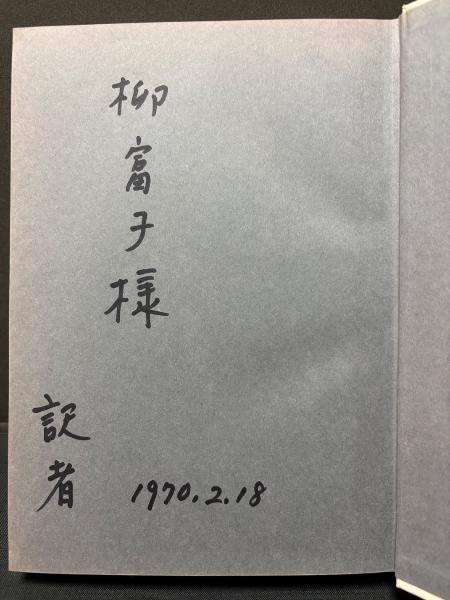 柳富子様
訳者
1970.2.18